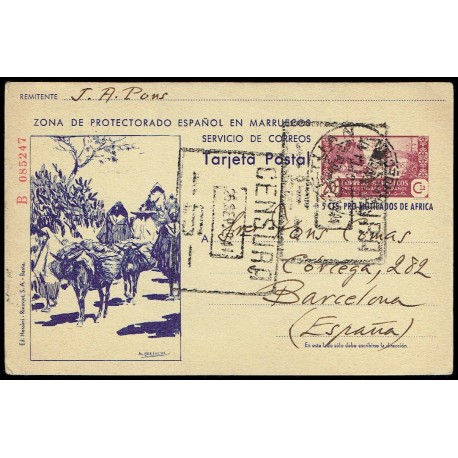 REMITENTE J. A. Pons
ZONA DE PROTECTORADO ESPAÑOL EN MARRUECOS
SERVICIO DE CORREOS
Tarjeta Postal
B 085247
20 Cs
5 CTS. PRO MUTILADOS DE AFRICA
CENSURA
A Pons Comas
Córcega, 282
Barcelona
(España)
En este lado sólo debe escribirse la dirección.